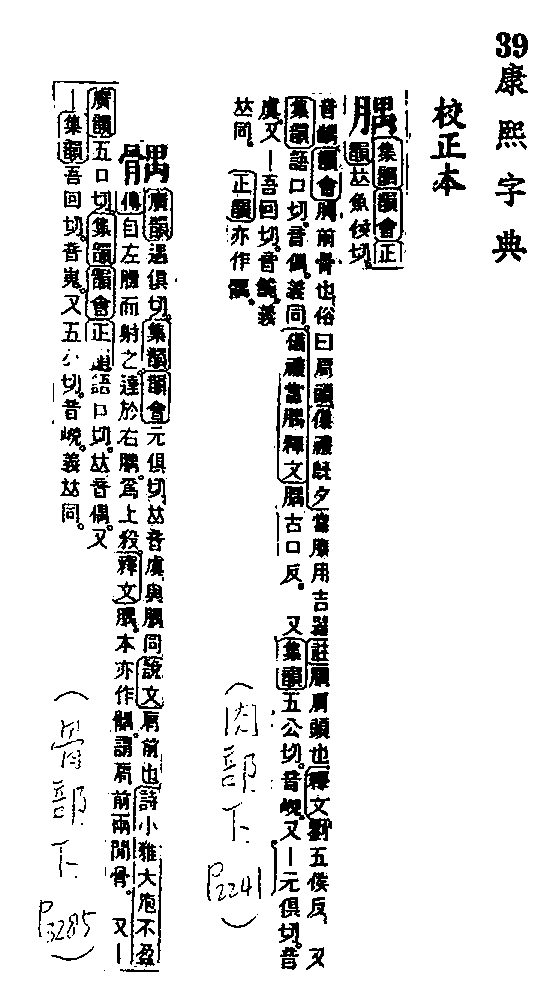 39 康熙字典
校正本
腢 集韻韻會正
韻𠀤魚侯切。
音齵。韻會腢前骨也俗曰肩頭儀禮旣夕當腢用吉器註腢肩頭也釋文劉五侯反。又
集韻語口切。音偶。義同。儀禮當腢釋文腢古口反。又集韻五公切。音㟅。又|元俱切。音
虞。又|吾回切。音嵬。義
𠀤同。正韻亦作髃。
(肉部下 P2241)
髃 廣韻遇俱切。集韻韻會元俱切。𠀤音虞與腢同說文肩前也詩小雅大庖不盈
傳自左膘而射之。達於右腢。爲上殺。釋文腢。本亦作髃。謂肩前兩閒骨。又|
廣韻五口切。集韻韻會正韻語口切。𠀤音偶。又
|集韻吾回切。音嵬。又五公切。音㟅。義𠀤同。
(骨部下 P3285)